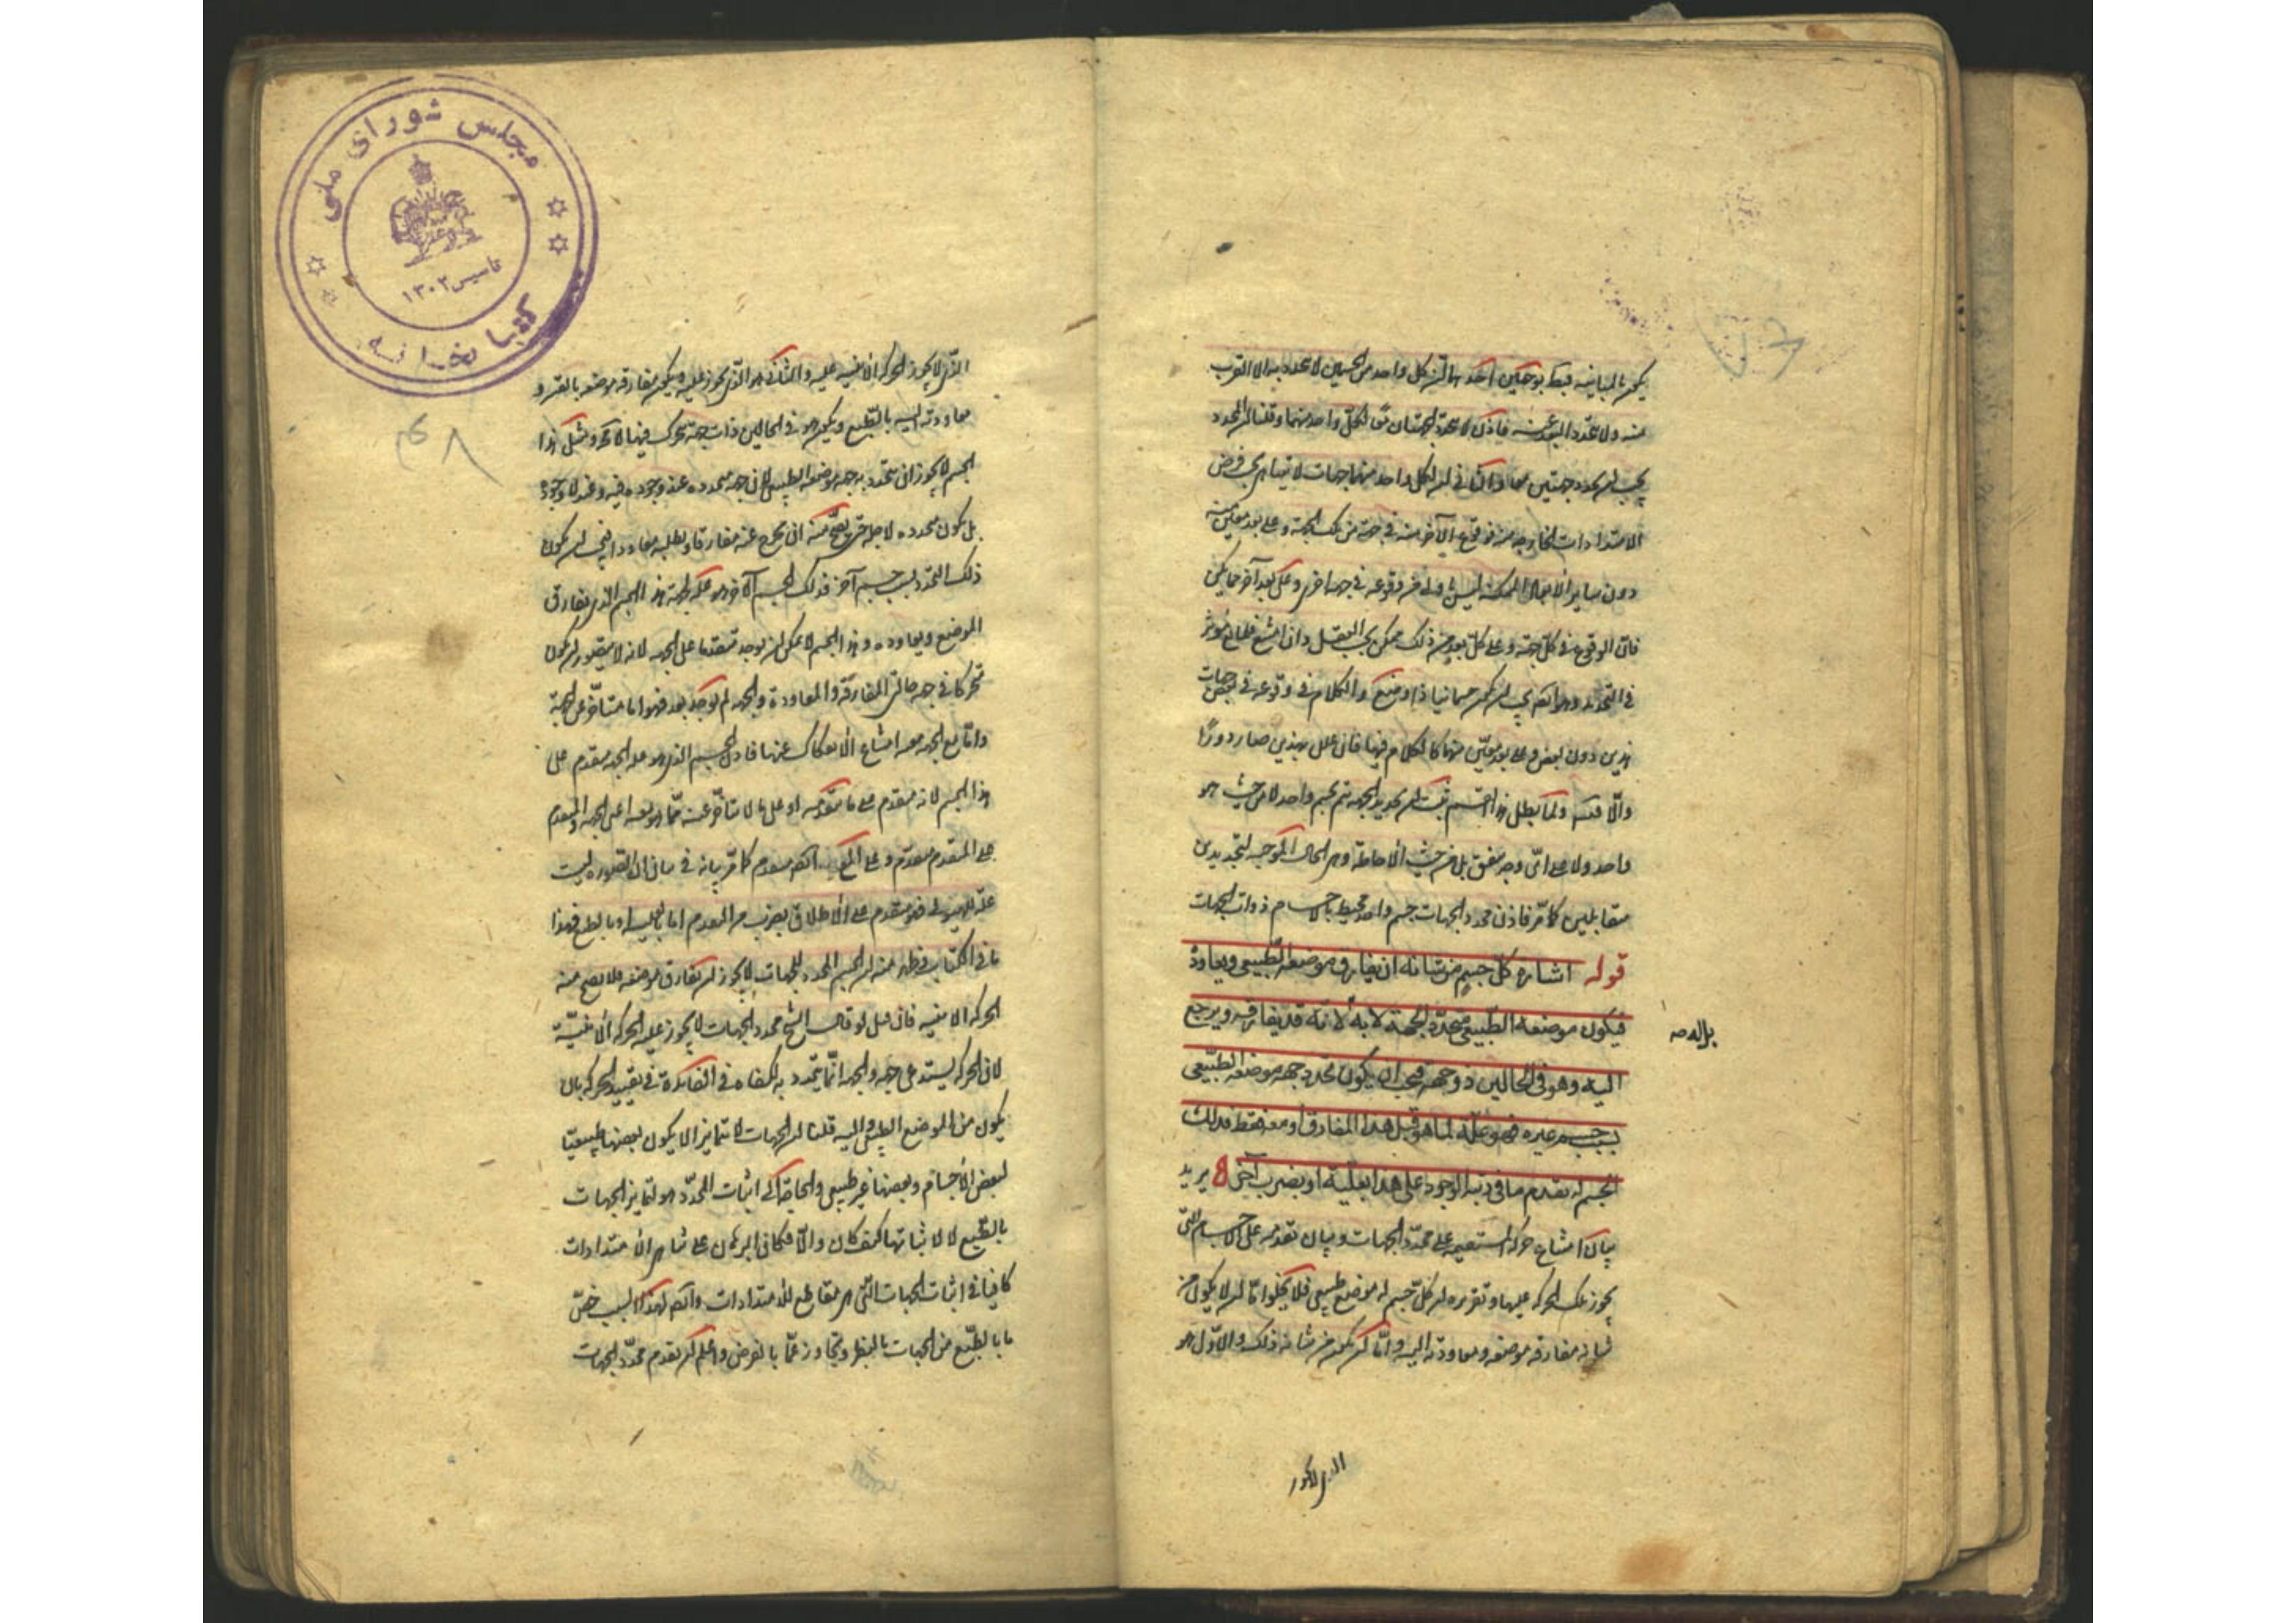 يكون بالمباينة فيبطل بوجهين احدهما ان كل واحد من الجسمين لا يتحدد به الا القرب
منه ولا يتحدد البعد عنه فاذن لا تتحدد الجهتان معا لكل واحد منهما وقلنا ان المحدد
يجب ان يحدد جهتين معا والثاني ان لكل واحد منهما جهات لا تتناهى بحسب فرض
الامتدادات الخارجة منه فوقوع الآخر منه في جهة من تلك الجهة وعلى بعد معين منه
دون سائر الابعاد الممكنة ليس اولى من وقوعه في جهة اخرى وعلى بعد آخر مما يمكن
فان الوقوع في كل جهة وعلى كل بعد من ذلك ممكن بحسب العقل وان امتنع فلمانع مؤثر
في التحديد وهو ايضا يجب ان يكون جسمانيا ذا وضع والكلام في وقوعه في بعض جهات
هذين دون بعض وعلى بعد معين منهما كالكلام فيهما فان علل بهذين صار دورا
والا تسلسل ولما بطل هذا القسم ثبت ان تحديد الجهة يتم بجسم واحد لا من حيث هو
واحد ولا على اى وجه يتفق بل من حيث الاحاطة وهى الحال الموجبة لتحديدين
متقابلين كما مر فاذن محدد الجهات جسم واحد محيط بالاجسام ذوات الجهات
قوله اشارة كل جسم من شانه ان يفارق موضعه الطبيعى ويعاوده
فيكون موضعه الطبيعى متحدد الجهة لا به لانه قد يفارقه ويرجع
اليه وهو فى الحالين ذو جهة فيجب ان يكون تحدد جهة موضعه الطبيعى
بسبب جسم غيره فهو علة لما هو قبل هذا المفارق او معه فقط فذلك
الجسم له تقدم ما فى رتبة الوجود على هذا بعلية او بضرب آخر يريد
بيان امتناع حركة المستقيمة على محدد الجهات وبيان تقدمه على الاجسام التى
يجوز تلك الحركة عليها وتقريره ان كل جسم له موضع طبيعى فلا يخلوا اما ان لا يكون من
شانه مفارقة موضعه ومعاودته اليه واما ان يكون من شانه ذلك والاول هو
الذى لا يجوز
الذى لا يجوز الحركة الاينية عليه والثانى هو الذى يجوز عليه ويكون مفارقة موضعه بالقسر و
معاودته اليه بالطبع ويكون هو فى الحالين ذات جهة يتحرك فيها لا محة ومثل هذا
الجسم لا يجوز ان يتحدد به جهة موضعه الطبيعى لان جهته متحددة عند وجوده فيه وعند لا وجوده
بل يكون محددة لاجله حتى يصح منه ان يخرج عنه مفارقا ويطلبه معاودا فيجب ان يكون
ذلك التحدد بسبب جسم آخر فذلك الجسم الآخر هو علة لجهة هذا الجسم الذى يفارق
الموضع ويعاوده وهذا الجسم لا يمكن ان يوجد متقدما على الجهة لانه لا يتصور ان يكون
متحركا فى جهة حالتى المفارقة والمعاودة والجهة لم توجد بعد فهو اما متاخر عن الجهة
واما مع الجهة معية امتناع الانفكاك عنها فاذن الجسم الذى هو علة الجهة متقدم على
هذا الجسم لانه متقدم على ما يتقدمه او على ما لا يتاخر عنه مما هو معه اعنى الجهة والمتقدم
على المتقدم متقدم وعلى المع ايضا متقدم كما مر بيانه فى بيان ان الصورة ليست
علة للهيولى فهو متقدم على الاطلاق بضرب من التقدم اما بالعلية او بالطبع فهذا
ما فى الكتاب فظهر منه ان الجسم المحدد للجهات لا يجوز ان يفارق موضعه فلا يصح منه
الحركة الاينية فان قيل لو قال الشيخ محدد الجهات لا يجوز عليه الحركة الاينية
لان الحركة يستدعى جهة والجهة انما تتحدد به لكفاه فما الفائدة فى تقييد الحركة بان
يكون من الموضع الطبيعى واليه قلنا ان الجهات لا تتمايز الا بكون بعضها طبيعيا
لبعض الاجسام وبعضها غير طبيعى والحاجة الى اثبات المحدد هو لتمايز الجهات
بالطبع لا لاثباتها كيف كان والا فكان البرهان على تناهى الامتدادات
كافيا فى اثبات الجهات التى هى مقاطع للامتدادات وايضا لهذا السبب خص
ما بالطبع من الجهات بالنظر وتجاوز عما بالفرض واعلم ان تقدم محدد الجهات
مجلس شوراى ملى
تاسيس ١٣٠٢
كتابخانه
٤٨